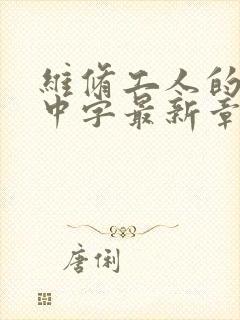 維脩工人的
中字最新章
唐俐